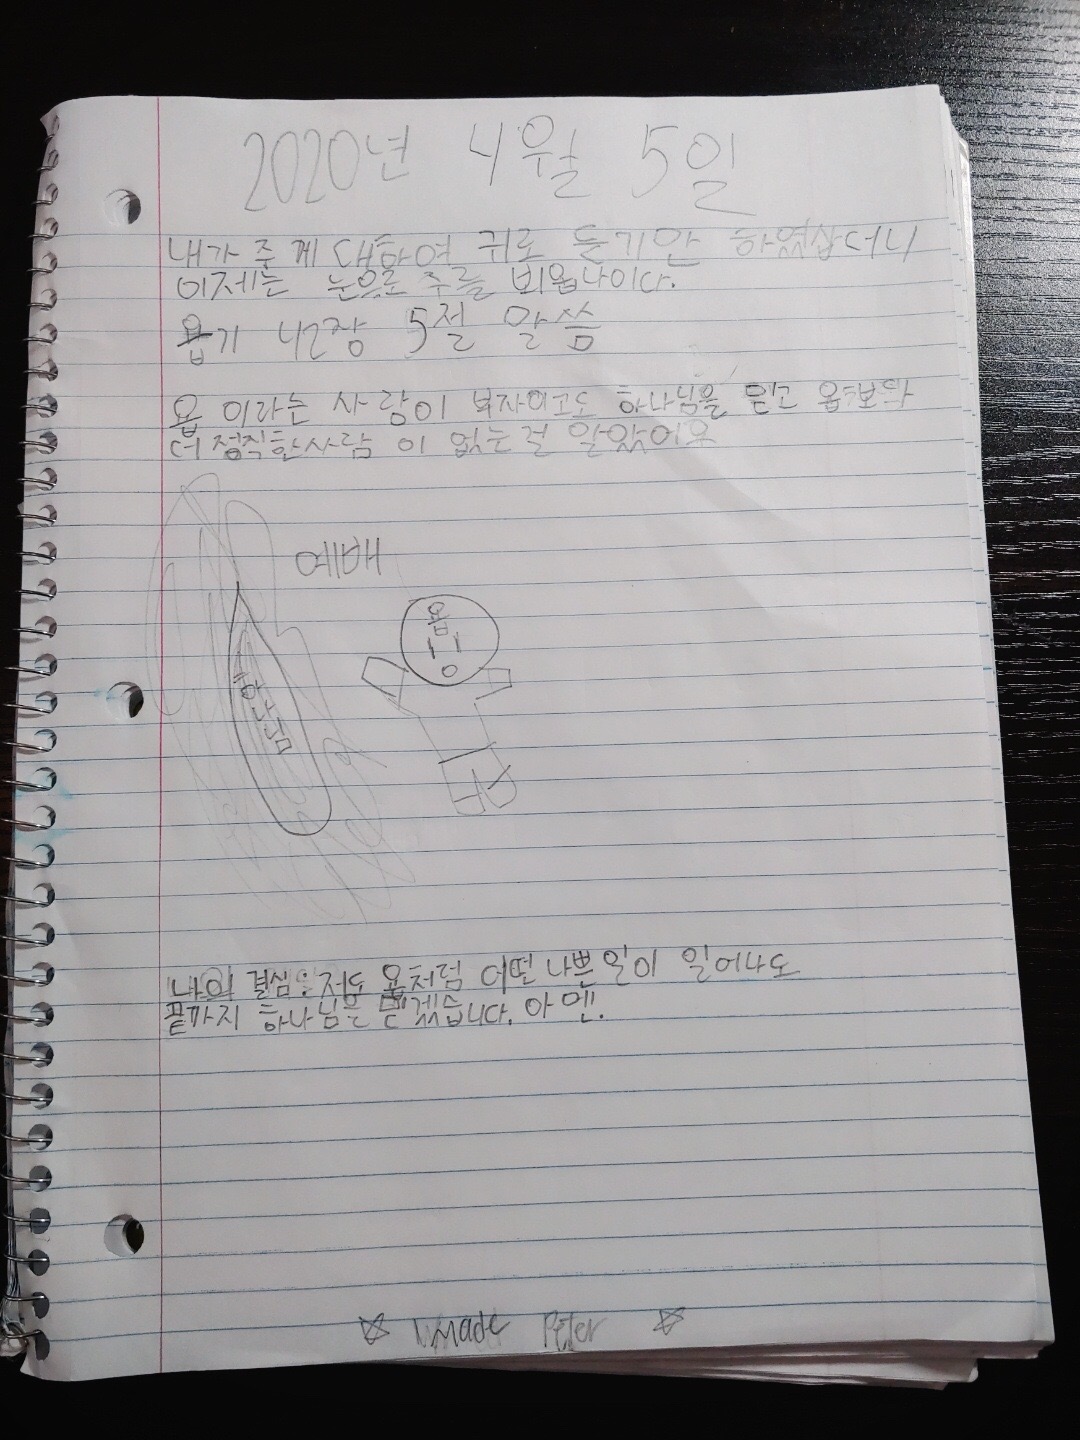 2020년 4월 5일
내가 주께 대하여 귀로 듣기만 하였삽더니
이제는 눈으로 주를 뵈옵나이다.
욥기 42장 5절 말씀
욥 이라는 사람이 부자이고도 하나님을 믿고 욥보다
더 정직한사람 이 없는걸 알았어요
예배
욥
나의 결심: 저도 욥처럼 어떤 나쁜일이 일어나도
끝까지 하나님을 믿겠습니다. 아멘.
made Peter